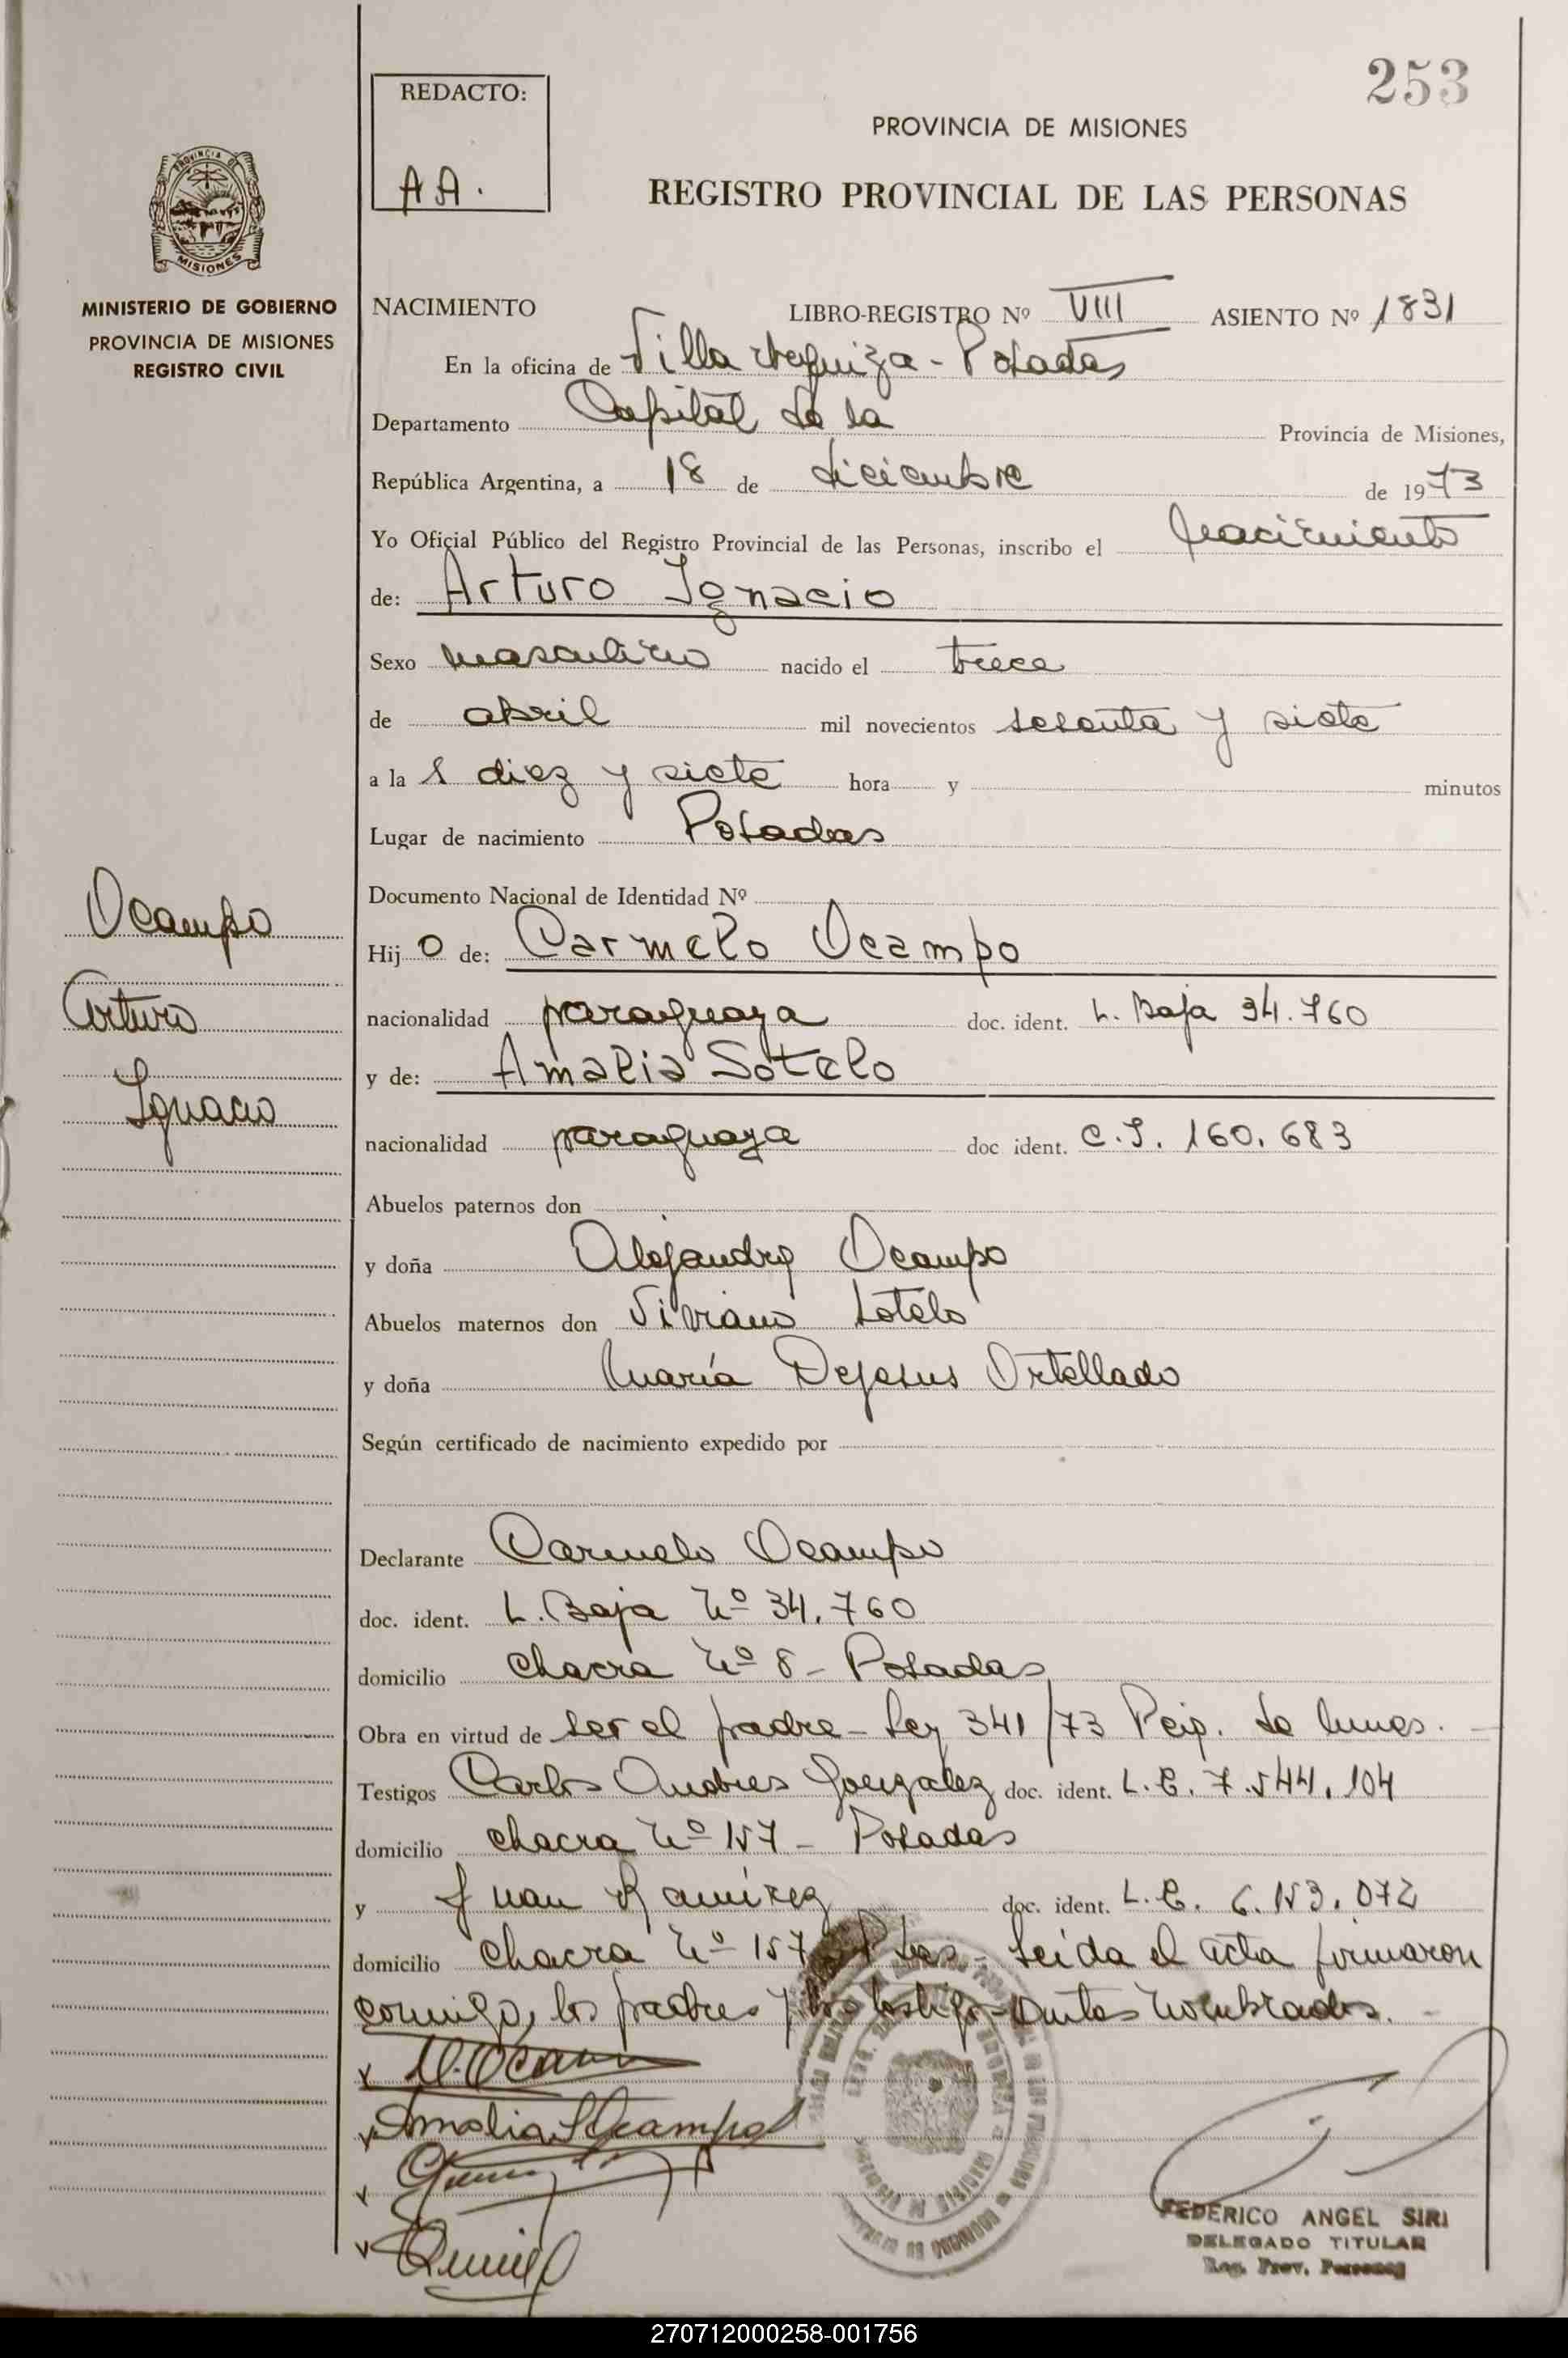 253
REDACTO:
AA.
PROVINCIA DE MISIONES
REGISTRO PROVINCIAL DE LAS PERSONAS
PROVINCIA DE
MISIONES
MINISTERIO DE GOBIERNO
PROVINCIA DE MISIONES
REGISTRO CIVIL
NACIMIENTO LIBRO-REGISTRO Nº VIII ASIENTO Nº 1831
En la oficina de Villa Urquiza - Posadas
Departamento Capital de la Provincia de Misiones,
República Argentina, a 18 de diciembre de 1973
Yo Oficial Público del Registro Provincial de las Personas, inscribo el nacimiento
de: Arturo Ignacio
Sexo masculino nacido el trece
de abril mil novecientos sesenta y siete
a la s diez y siete hora y minutos
Lugar de nacimiento Posadas
Documento Nacional de Identidad Nº
Ocampo
Arturo
Ignacio
Hij o de: Carmelo Ocampo
nacionalidad paraguaya doc. ident. L. Baja 34.760
y de: Amalia Sotelo
nacionalidad paraguaya doc ident. C.I. 160.683
Abuelos paternos don
y doña Alejandra Ocampo
Abuelos maternos don Sotelo
y doña María Dejesus Ortellado
Según certificado de nacimiento expedido por
Declarante Carmelo Ocampo
doc. ident. L. Baja Nº 34.760
domicilio chacra Nº 8 - Posadas
Obra en virtud de ser el padre - Ley 341/73
Testigos Carlos Andres Gonzalez doc. ident. L.E. 7.544.104
domicilio chacra Nº 157 - Posadas
y Juan Ramírez doc. ident. L.E. 6.153.072
domicilio chacra Nº 157 - Pdas - Leída el acta firmaron
conmigo, los padres y los testigos antes nombrados.
Amalia S Ocampo
FEDERICO ANGEL SIRI
DELEGADO TITULAR
Reg. Prov. Personas
270712000258-001756